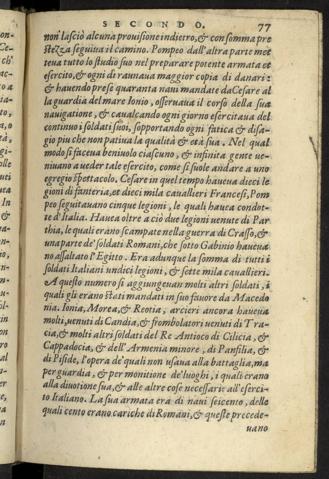 SECONDO. 77
non lasciò alcuna prouisione indietro, & con somma pre
stezza seguiua il camino. Pompeo dall'altra parte met
teua tutto lo studio suo nel preparare potente armata et
esercito, & ogni dì raunaua maggior copia di danari:
& hauendo prese quaranta naui mandate da Cesare al
la guardia del mare Ionio, osseruaua il corso della sua
nauigatione, & caualcando ogni giorno esercitaua del
continuo i soldati suoi, sopportando ogni fatica & disa-
gio piu che non patiua la qualità & età sua. Nel qual
modo si faceua beniuolo ciascuno, & infinita gente ue-
niuano a ueder tale esercito, come si suole andare a uno
egregio spettacolo. Cesare in quel tempo haueua dieci le
gioni di fanteria, et dieci mila cauallieri Francesi, Pom
peo seguitauano cinque legioni, le quali hauea condot-
te d'Italia. Hauea oltre a ciò due legioni uenute di Par
thia, le quali erano scampate nella guerra di Crasso, &
una parte de' soldati Romani, che sotto Gabinio haueua
no assaltato l'Egitto. Era adunque la somma di tutti i
soldati Italiani undici legioni, & sette mila cauallieri.
A questo numero si aggiungeuan molti altri soldati, i
quali gli erano stati mandati in suo fauore da Macedo
nia, Ionia, Morea, & Beotia, arcieri ancora haueua
molti, uenuti di Candia, & frombolatori uenuti di Tra-
cia, & molti altri soldati del Re Antioco di Cilicia, &
Cappadocia, & dell'Armenia minore, di Panfilia, &
di Piside, l'opera de' quali non usaua alla battaglia, ma
per guardia, & per monitione de' luoghi, i quali erano
alla diuotione sua, & alle altre cose necessarie all'eserci-
to Italiano. La sua armata era di naui seicento, delle
quali cento erano cariche di Romani, & queste precede-
uano